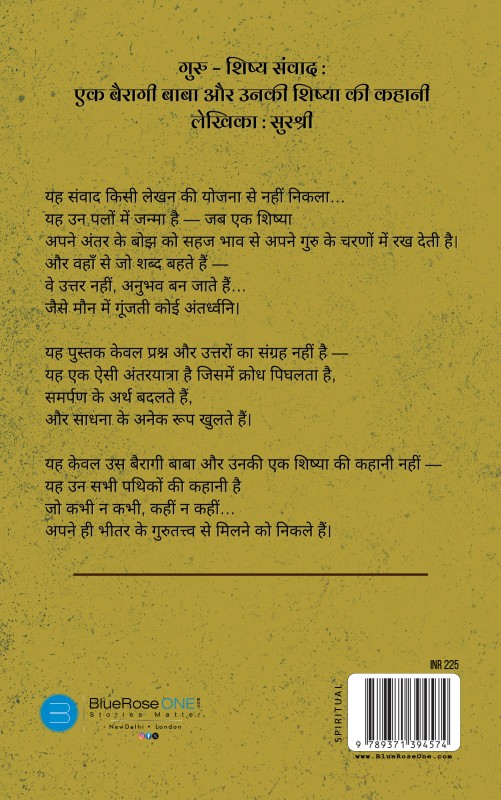 गुरु - शिष्य संवाद :
एक बैरागी बाबा और उनकी शिष्या की कहानी
लेखिका : सुरश्री
यह संवाद किसी लेखन की योजना से नहीं निकला...
यह उन पलों में जन्मा है — जब एक शिष्या
अपने अंतर के बोझ को सहज भाव से अपने गुरु के चरणों में रख देती है।
और वहाँ से जो शब्द बहते हैं —
वे उत्तर नहीं, अनुभव बन जाते हैं...
जैसे मौन में गूंजती कोई अंतर्ध्वनि।
यह पुस्तक केवल प्रश्न और उत्तरों का संग्रह नहीं है —
यह एक ऐसी अंतरयात्रा है जिसमें क्रोध पिघलता है,
समर्पण के अर्थ बदलते हैं,
और साधना के अनेक रूप खुलते हैं।
यह केवल उस बैरागी बाबा और उनकी एक शिष्या की कहानी नहीं —
यह उन सभी पथिकों की कहानी है
जो कभी न कभी, कहीं न कहीं...
अपने ही भीतर के गुरुतत्त्व से मिलने को निकले हैं।
INR 225
SPIRITUAL
BlueRose ONE.com
Stories Matter
NewDelhi • London
9 789371 394574
www.BlueRoseOne.com